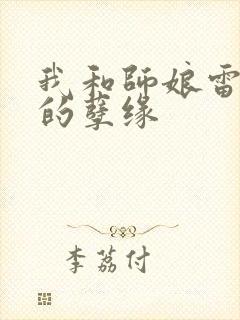 我和師娘雷
的孽缘
李荔付